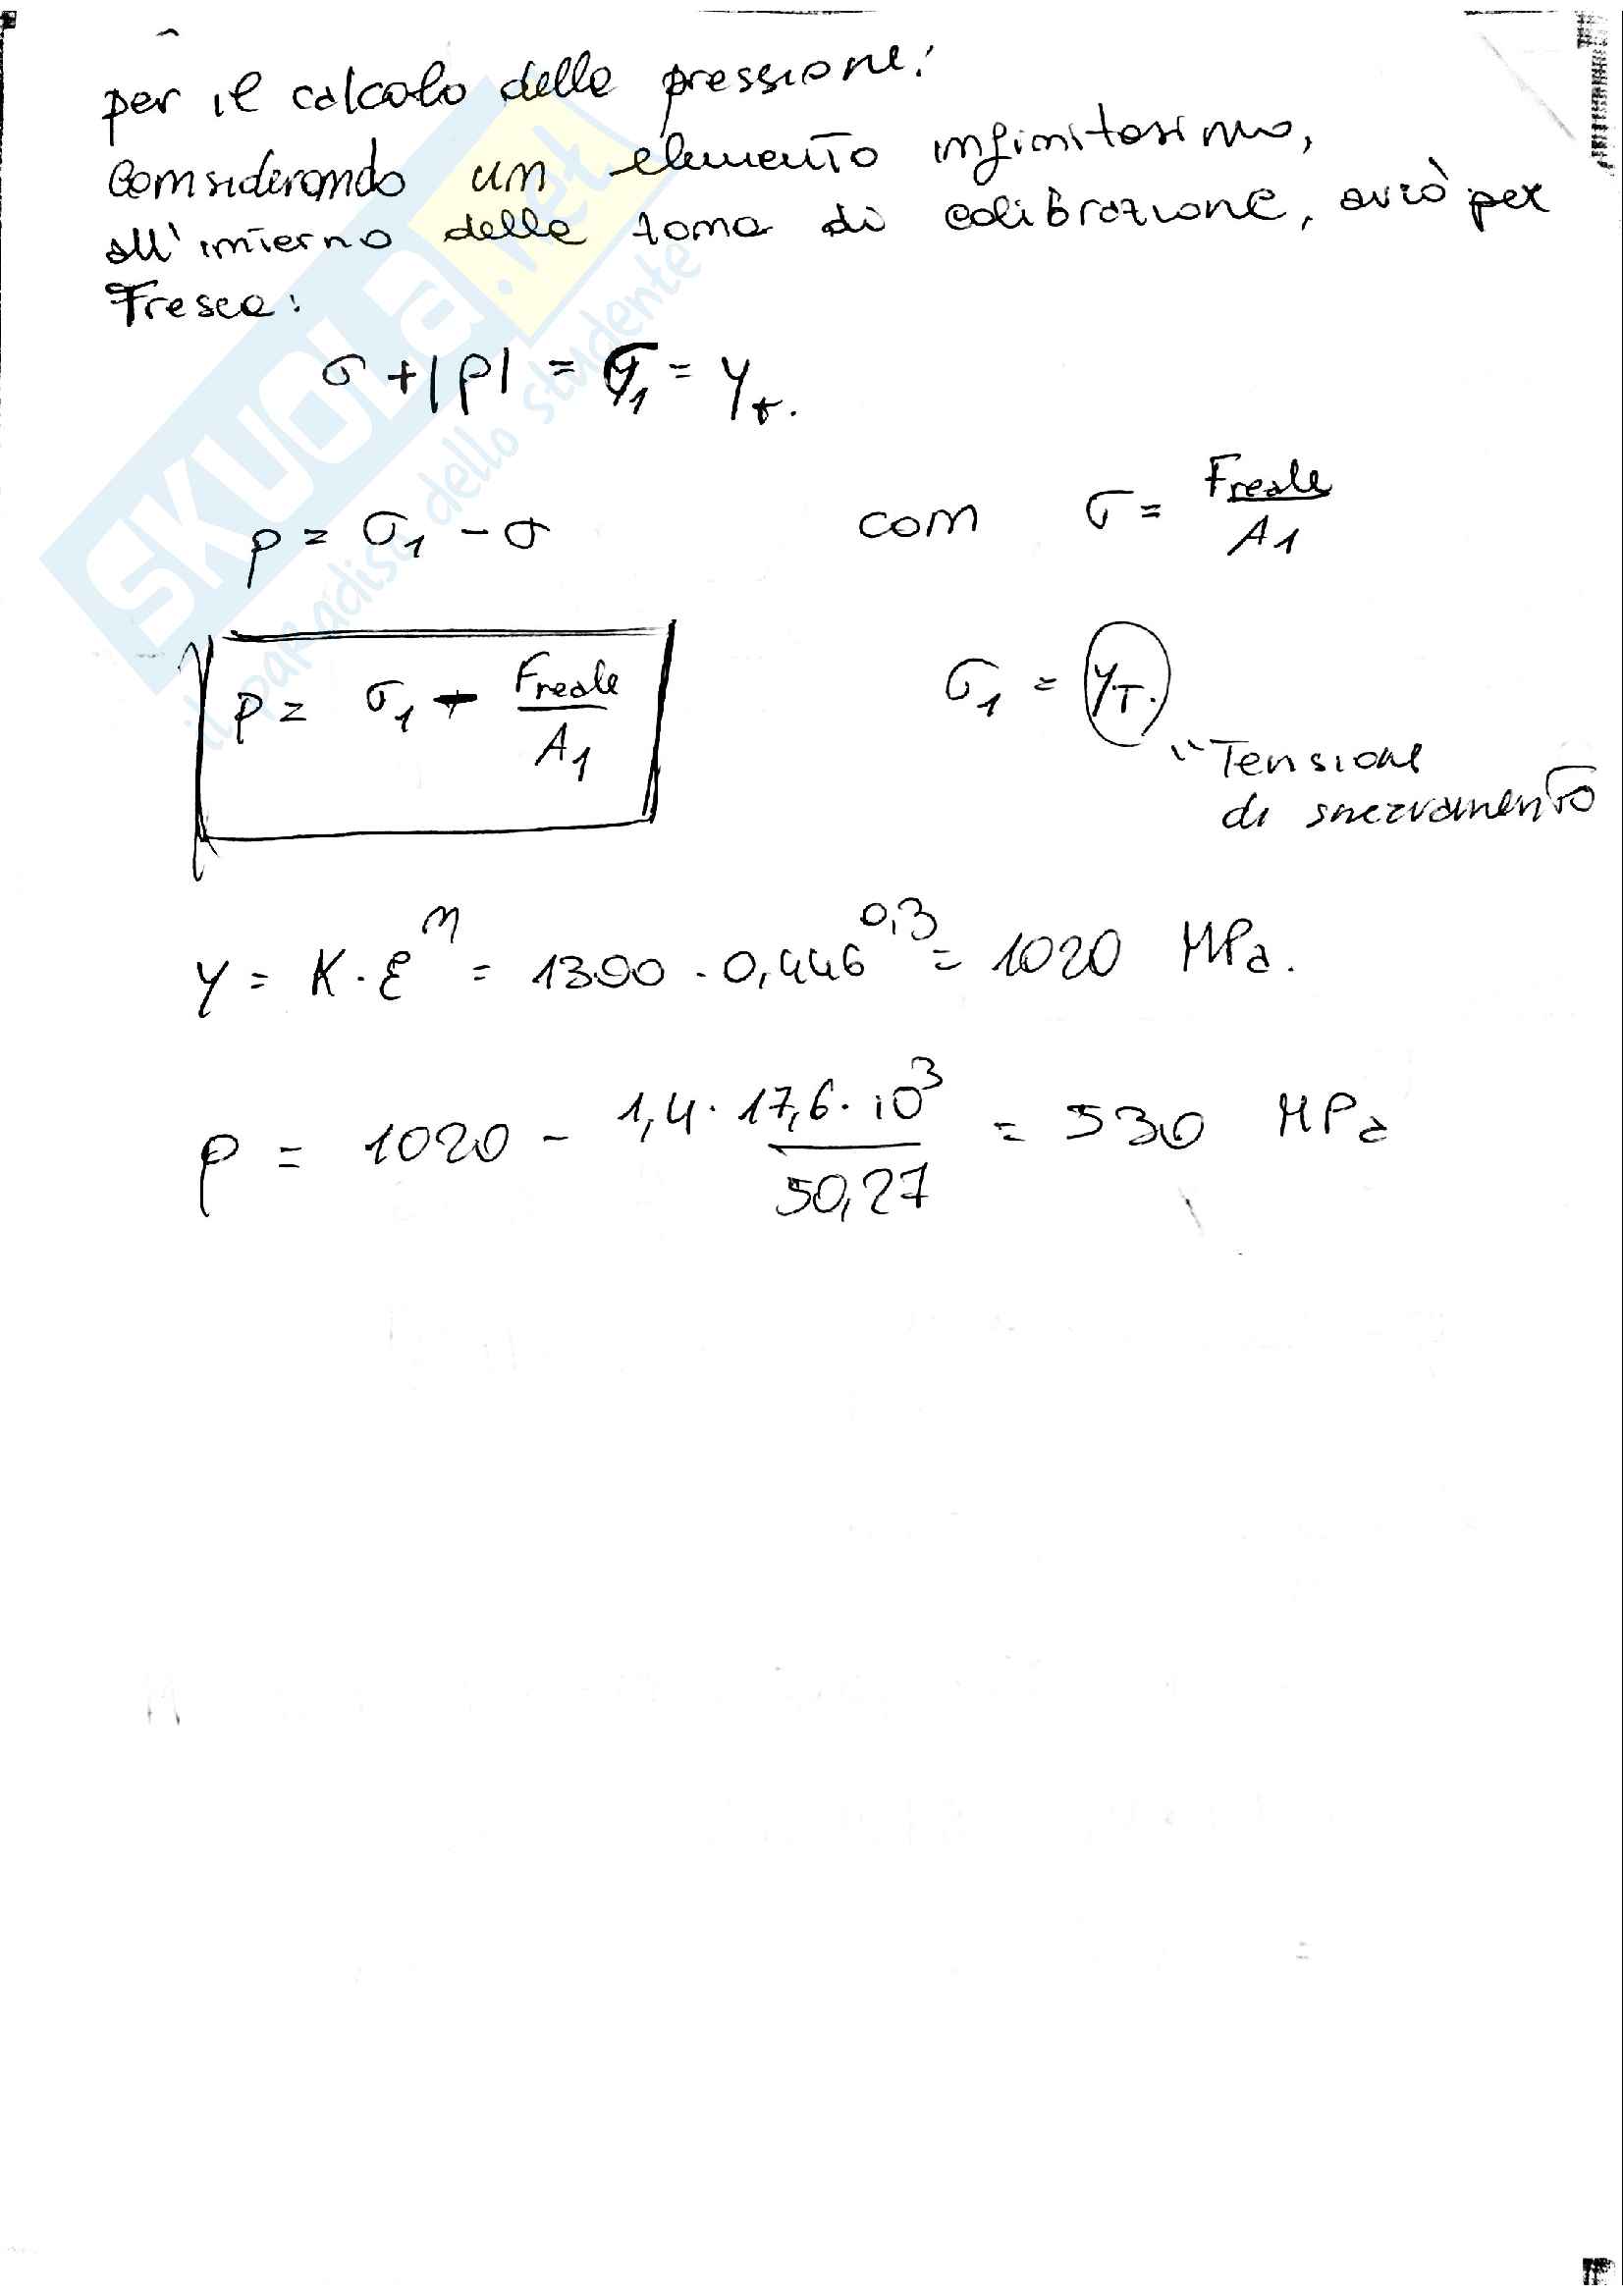 per il calcolo della pressione:
Considerando un elemento infinitesimo,
all'interno della zona di calibrazione, avrò per
Tresca:
σ + |p| = σ1 = Yt.
p = σ1 - σ con σ = Freale / A1
p = σ1 - Freale / A1 σ1 = YT.
"Tensione
di snervamento
Y = K · ε^n = 1300 · 0,446^0,3 = 1020 MPa.
p = 1020 - 1,4 · 17,6 · 10^3 / 50,27 = 530 MPa
SKUOLA.net
il paradiso dello studente